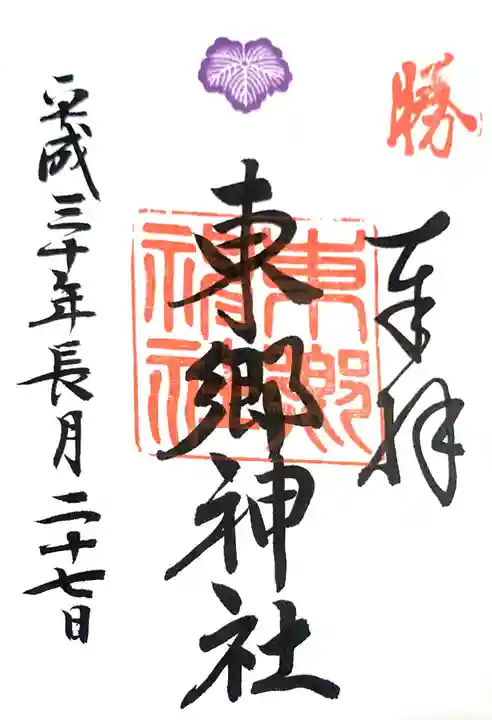 勝
奉拝
東郷神社
東郷神社
平成三十年長月二十七日